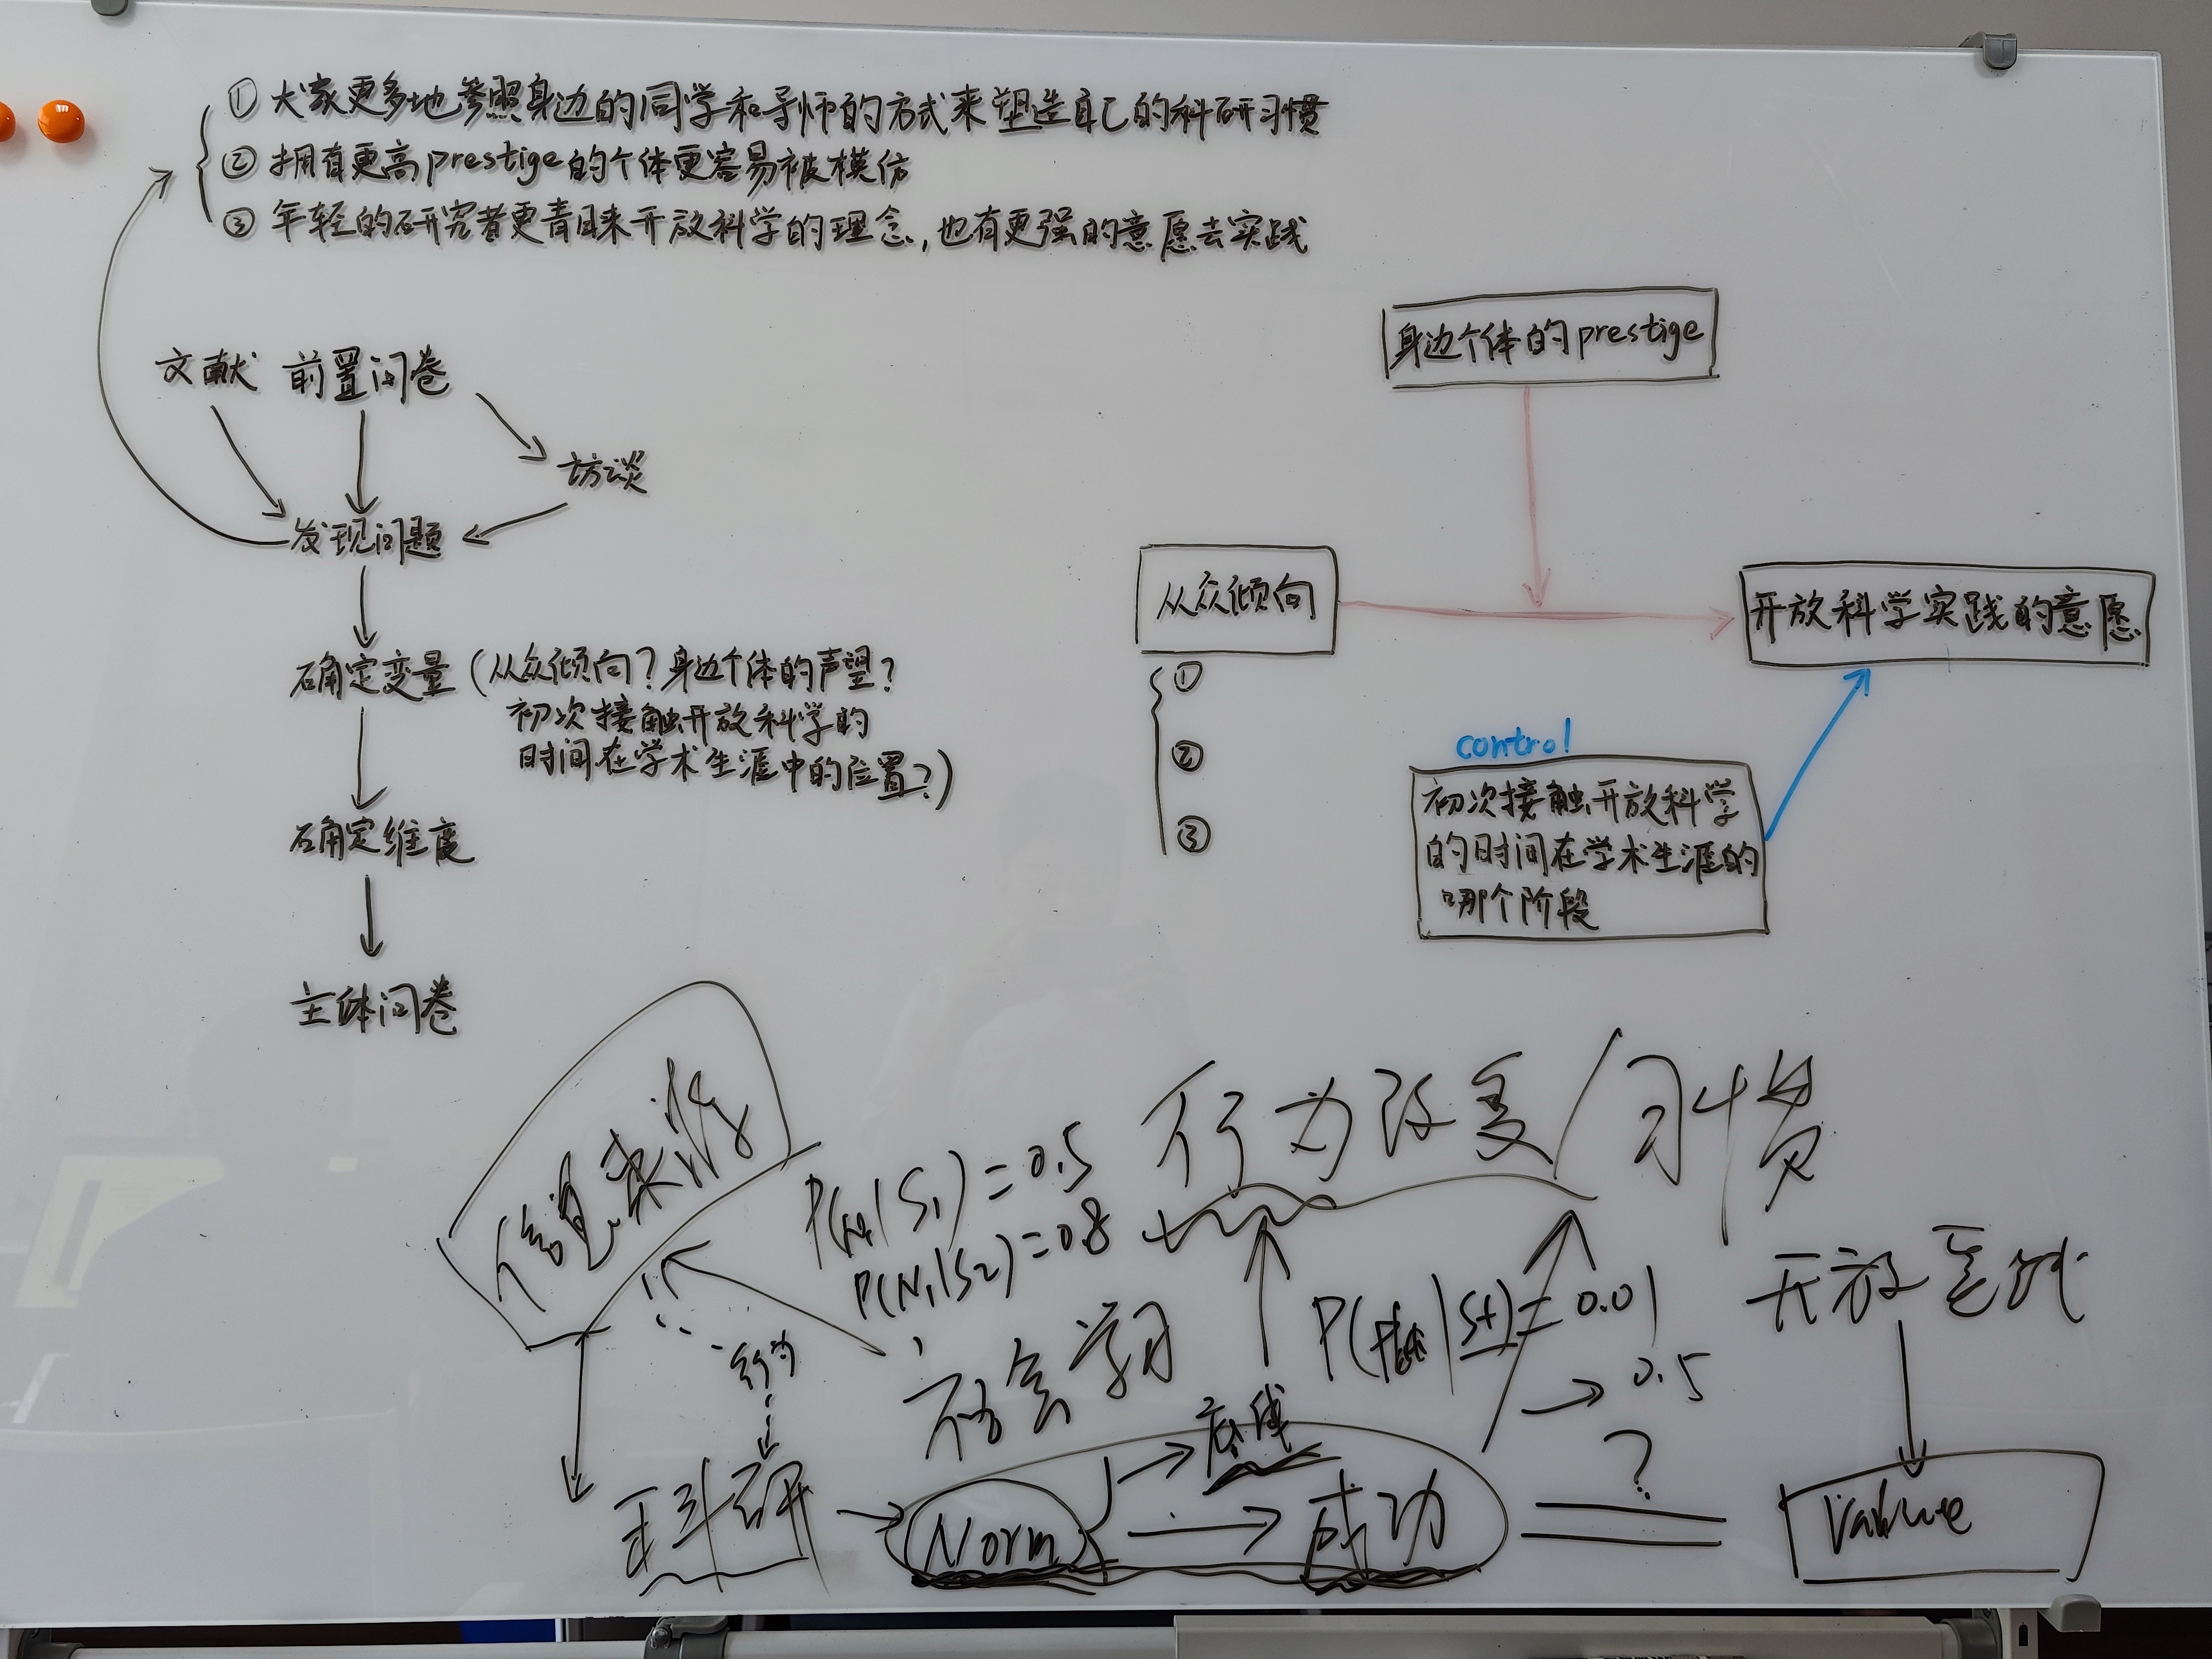 ① 大家更多地参照身边的同学和导师的方式来塑造自己的科研习惯
② 拥有更高prestige的个体更容易被模仿
③ 年轻的研究者更青睐开放科学的理念，也有更强的意愿去实践
文献 前置问卷
访谈
发现问题
确定变量（从众倾向？身边个体的声望？
初次接触开放科学的
时间在学术生涯中的位置？）
确定维度
主体问卷
身边个体的prestige
从众倾向
开放科学实践的意愿
①
②
③
control
初次接触开放科学
的时间在学术生涯的
哪个阶段
信息来源
P(N1|S1)=0.5
P(N1|S2)=0.8
行为改变/习惯
行为
社会学习
P(|S+)=0.01
→ 0.5
开放实践
科研
Norm
底线
成功
?
Value